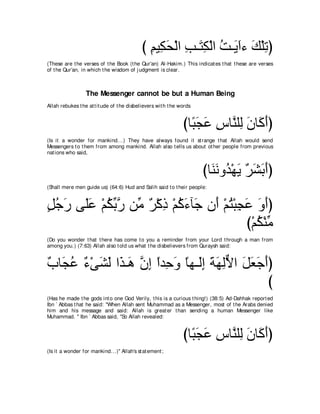 ( تِلْكَ ءَايَـتُ الْكِتَـبِ الْحَكِيمِ )
(These are the verses of the Book (the Qur'an) Al-Hakim.) This indicates that these are verses
of the Qur'an, in which the wisdom of judgment is clear.
The Messenger cannot be but a Human Being
Allah rebukes the attitude of the disbelievers with the words
(أَكَانَ لِلنَّاسِ عَجَبًا)
(Is it a wonder for mankind...) They have always found it strange that Allah would send
Messengers to them from among mankind. Allah also tells us about other people from previous
nations who said,
(أَبَشَرٌ يَهْدُونَنَا)
(Shall mere men guide us) (64:6) Hud and Salih said to their people:
(أَوَ عَجِبْتُمْ أَن جَآءَكُمْ ذِكْرٌ مِّن رَّبِّكُمْ عَلَى رَجُلٍ
مِّنْكُمْ)
(Do you wonder that there has come to you a reminder from your Lord through a man from
among you.) (7:63) Allah also told us what the disbelievers from Quraysh said:
(أَجَعَلَ الاٌّلِهَةَ إِلَـهاً وَحِداً إِنَّ هَـذَا لَشَىْءٌ عُجَابٌ
)
(Has he made the gods into one God Verily, this is a curious thing!) (38:5) Ad-Dahhak reported
Ibn `Abbas that he said: "When Allah sent Muhammad as a Messenger, most of the Arabs denied
him and his message and said: Allah is greater than sending a human Messenger like
Muhammad. " Ibn `Abbas said, "So Allah revealed:
(أَكَانَ لِلنَّاسِ عَجَبًا)
(Is it a wonder for mankind...)" Allah's statement;